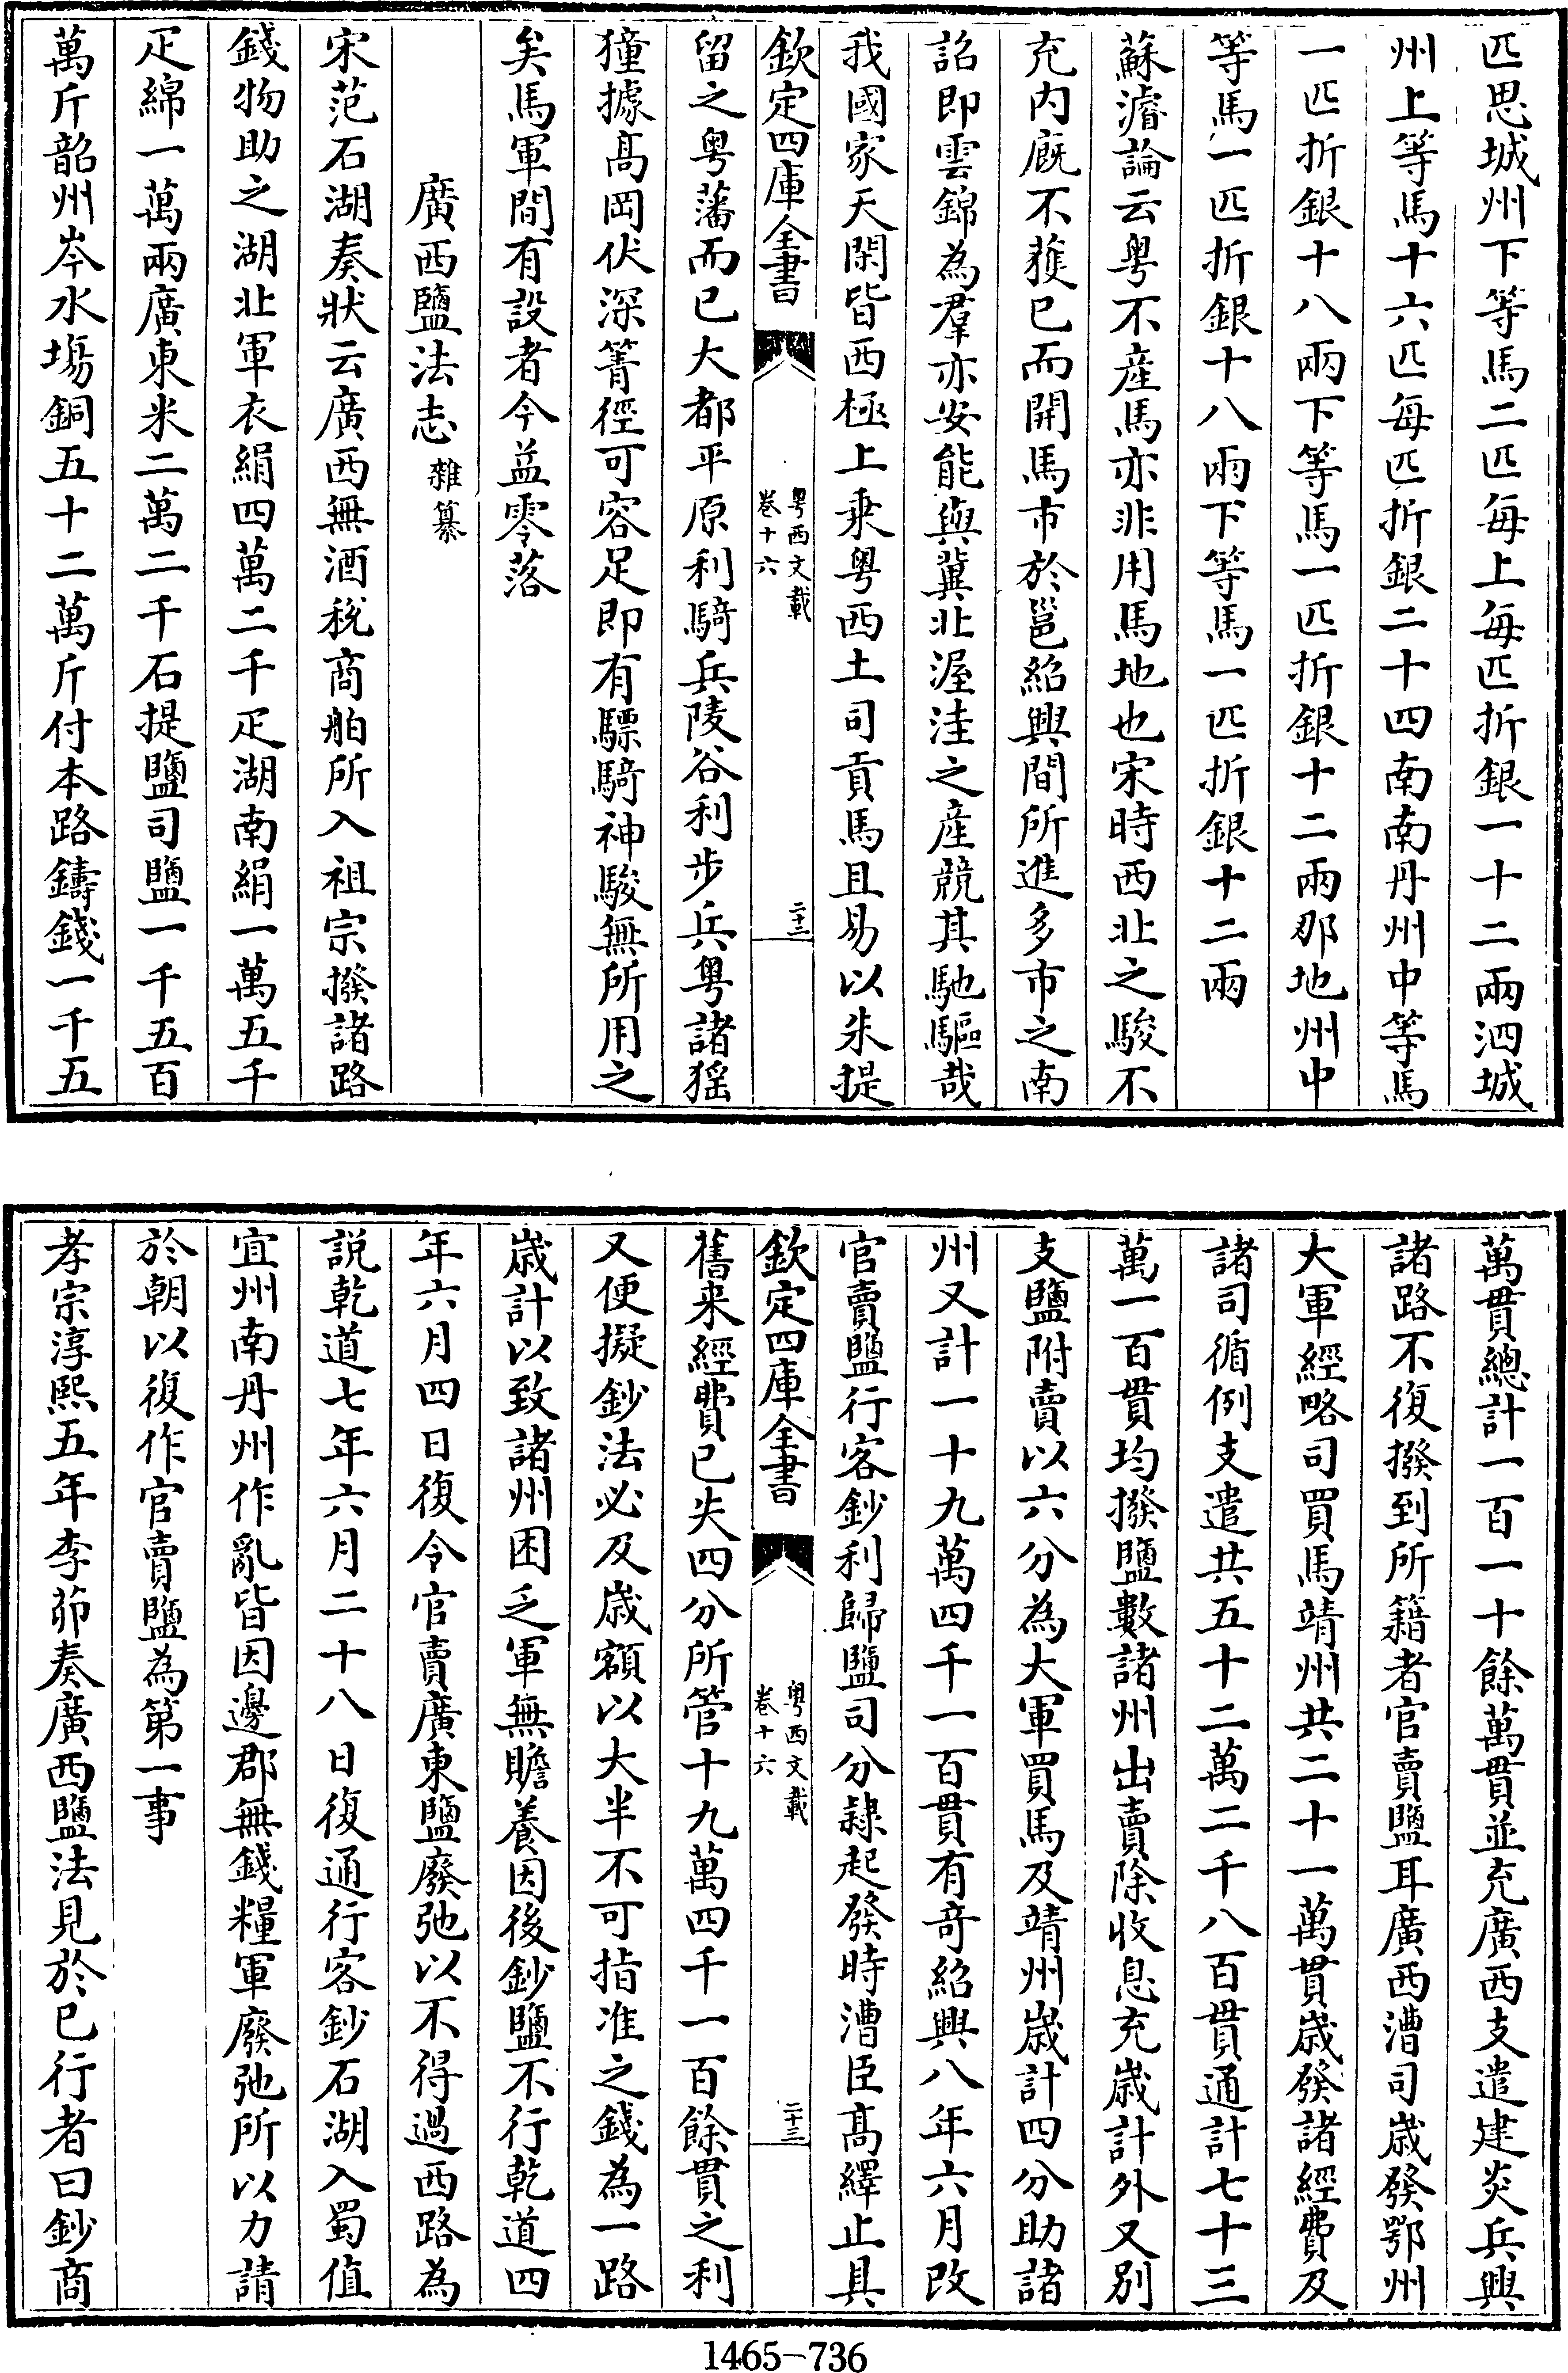 匹思城州下等馬二匹每上每匹折銀一十二兩泗城
州上等馬十六匹每匹折銀二十四南南丹州中等馬
一匹折銀十八兩下等馬一匹折銀十二兩那地州中
等馬一匹折銀十八兩下等馬一匹折銀十二兩
蘇濬論云粤不產馬亦非用馬地也宋時西北之駿不
充内廐不獲已而開馬市於邕紹興間所進多市之南
詔即雲錦為羣亦安能與冀北渥洼之產競其馳驅哉
我國家天閑皆西極上乗粤西土司貢馬且易以朱提
欽定四庫全書
粤西文載
卷十六
二十三
留之粤藩而已大都平原利騎兵陵谷利步兵粤諸猺
獞據髙岡伏深箐徑可容足即有驃騎神駿無所用之
矣馬軍間有設者今益零落
廣西鹽法志 雜纂
宋范石湖奏狀云廣西無酒稅商舶所入祖宗撥諸路
錢物助之湖北軍衣絹四萬二千疋湖南絹一萬五千
疋綿一萬兩廣東米二萬二千石提鹽司鹽一千五百
萬斤韶州岑水場銅五十二萬斤付本路鑄錢一千五
萬貫總計一百一十餘萬貫並充廣西支遣建炎兵興
諸路不復撥到所籍者官賣鹽耳廣西漕司歲發鄂州
大軍經略司買馬靖州共二十一萬貫歲發諸經費及
諸司循例支遣共五十二萬二千八百貫通計七十三
萬一百貫均撥鹽數諸州出賣除收息充歲計外又別
支鹽附賣以六分為大軍買馬及靖州歲計四分助諸
州又計一十九萬四千一百貫有奇紹興八年六月改
官賣鹽行客鈔利歸鹽司分隷起發時漕臣髙繹止具
欽定四庫全書
粤西文載
卷十六
二十三
舊来經費已失四分所管十九萬四千一百餘貫之利
又便擬鈔法必及歲額以大半不可指准之錢為一路
歲計以致諸州困乏軍無贍養因後鈔鹽不行乾道四
年六月四日復令官賣廣東鹽廢弛以不得過西路為
說乾道七年六月二十八日復通行客鈔石湖入蜀值
宜州南丹州作亂皆因邊郡無錢糧軍廢弛所以力請
於朝以復作官賣鹽為第一事
孝宗淳熙五年李茆奏廣西鹽法見於已行者曰鈔商
1465-736